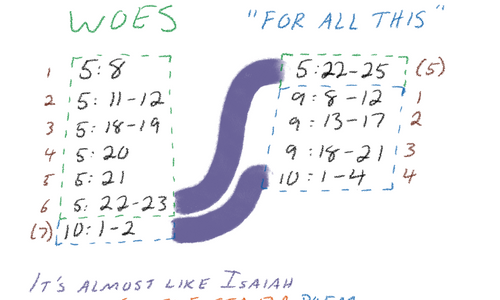 WOES
1 5:8
2 5:11-12
3 5:18-19
4 5:20
5 5:21
6 5:22-23
(7) 10:1-2
"FOR ALL THIS"
5:22-25 (5)
9:8-12 1
9:13-17 2
9:18-21 3
10:1-4 4
IT'S ALMOST LIKE ISAIAH